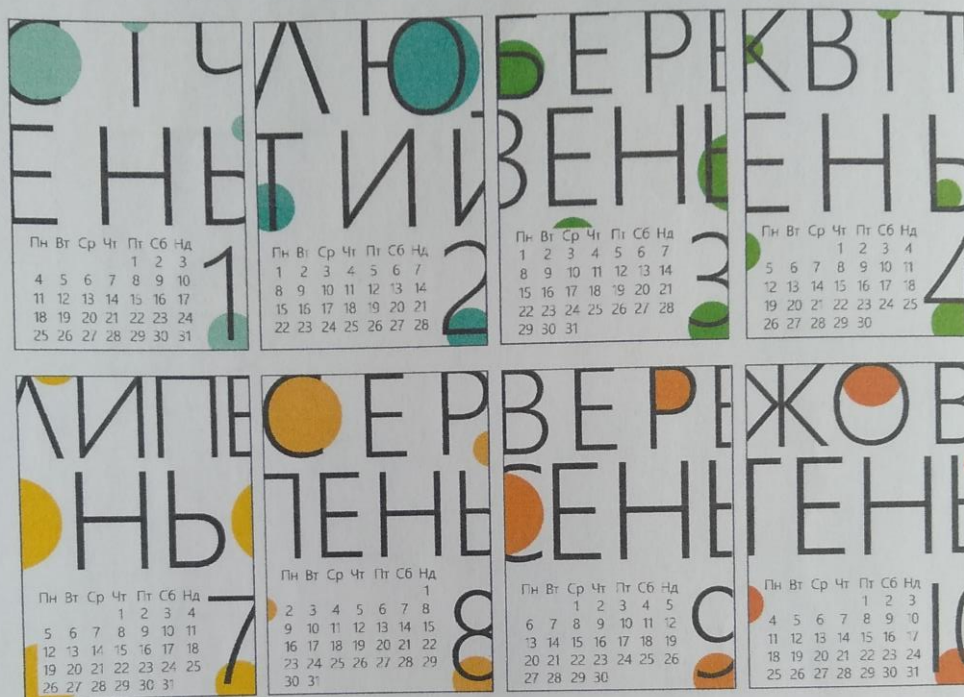 СІЧ
ЕНЬ
Пн Вт Ср Чт Пт Сб Нд
1 2 3
4 5 6 7 8 9 10
11 12 13 14 15 16 17
18 19 20 21 22 23 24
25 26 27 28 29 30 31
1
ЛЮ
ТИЙ
Пн Вт Ср Чт Пт Сб Нд
1 2 3 4 5 6 7
8 9 10 11 12 13 14
15 16 17 18 19 20 21
22 23 24 25 26 27 28
2
БЕРЕ
ЗЕНЬ
Пн Вт Ср Чт Пт Сб Нд
1 2 3 4 5 6 7
8 9 10 11 12 13 14
15 16 17 18 19 20 21
22 23 24 25 26 27 28
29 30 31
3
КВІТ
ЕНЬ
Пн Вт Ср Чт Пт Сб Нд
1 2 3 4
5 6 7 8 9 10 11
12 13 14 15 16 17 18
19 20 21 22 23 24 25
26 27 28 29 30
4
ЛИПЕ
НЬ
Пн Вт Ср Чт Пт Сб Нд
1 2 3 4
5 6 7 8 9 10 11
12 13 14 15 16 17 18
19 20 21 22 23 24 25
26 27 28 29 30 31
7
СЕР
ПЕНЬ
Пн Вт Ср Чт Пт Сб Нд
1
2 3 4 5 6 7 8
9 10 11 12 13 14 15
16 17 18 19 20 21 22
23 24 25 26 27 28 29
30 31
8
ВЕРЕ
СЕНЬ
Пн Вт Ср Чт Пт Сб Нд
1 2 3 4 5
6 7 8 9 10 11 12
13 14 15 16 17 18 19
20 21 22 23 24 25 26
27 28 29 30
9
ЖОВ
ТЕНЬ
Пн Вт Ср Чт Пт Сб Нд
1 2 3
4 5 6 7 8 9 10
11 12 13 14 15 16 17
18 19 20 21 22 23 24
25 26 27 28 29 30 31
10